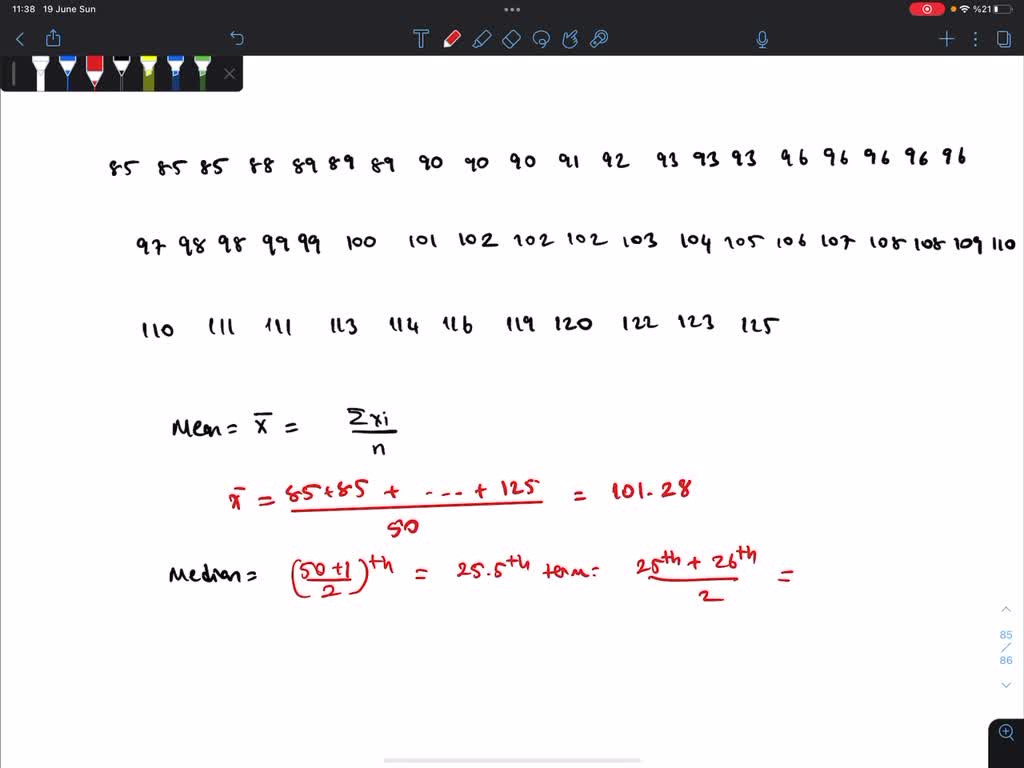 11:38 19 June Sun
%21
85 85 85 88 89 89 89 90 90 90 91 92 93 93 93 96 96 96 96 96
97 98 98 99 99 100 101 102 102 102 103 104 105 106 107 108 108 109 110
110 111 111 113 114 116 119 120 122 123 125
Mean = x̄ = Σxi / n
x̄ = 85+85 + .... + 125 / 50 = 101.28
Median = (50+1 / 2)th = 25.5th term = 25th + 26th / 2 =
85 / 86